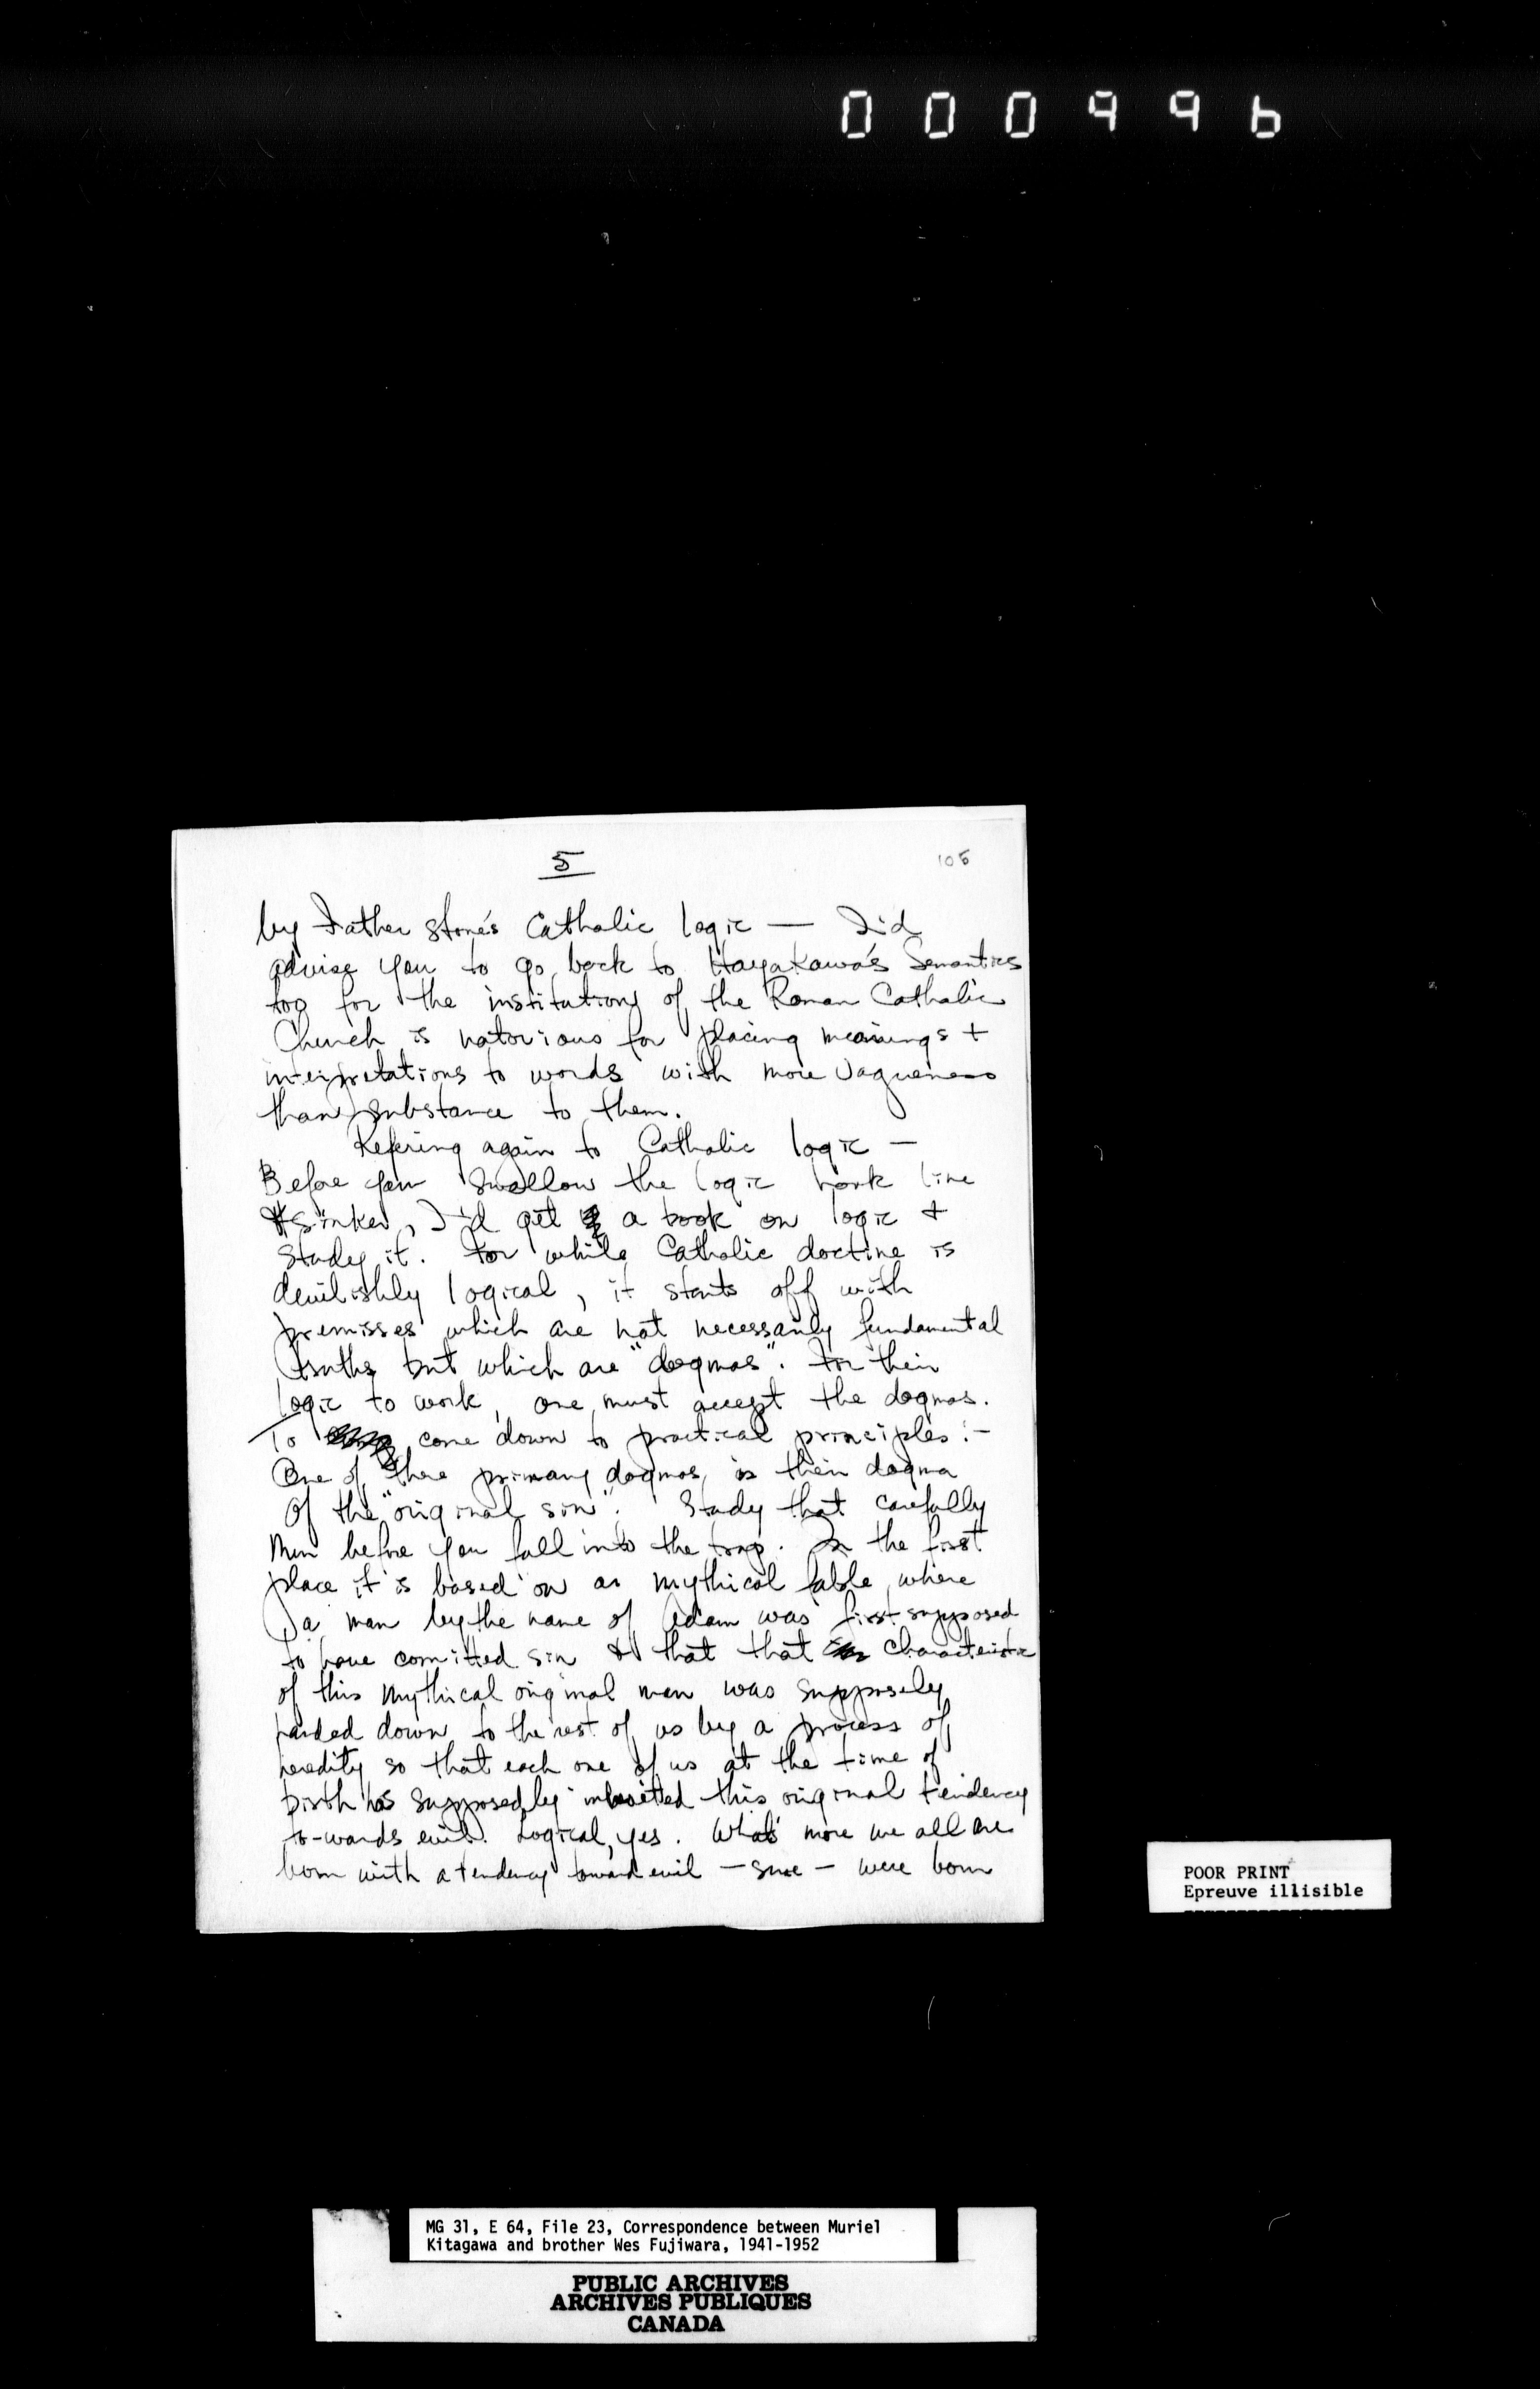 000996
5
105
by Father Stone's Catholic logic — I'd
advise you to go back to Hayakawa's Semantics
too for the institutions of the Roman Catholic
Church is notorious for placing meanings +
interpretations to words with more vagueness
than substance to them.
Refering again to Catholic logic —
Before you swallow the logic hook line
& sinker, I'd get a book on logic +
study it. For while Catholic doctine is
devilishly logical, it starts off with
premisses which are not necessarily fundamental
truths but which are "dogmas". For their
logic to work, one must accept the dogmas.
To come down to practical principles :-
One of there primary dogmas, is their dogma
of the "original sin". Study that carefully
Mur before you fall into the trap. In the first
place it is based on an mythical fable, where
a man by the name of Adam was first supposed
to have comitted sin & that that characteristic
of this mythical original man was supposely
handed down to the rest of us by a process of
heredity so that each one of us at the time of
birth has supposedly inherited this original tendency
to-wards evil. Logical, yes. What's more we all are
born with a tendency toward evil — sure — were born
POOR PRINT
Epreuve illisible
MG 31, E 64, File 23, Correspondence between Muriel
Kitagawa and brother Wes Fujiwara, 1941-1952
PUBLIC ARCHIVES
ARCHIVES PUBLIQUES
CANADA